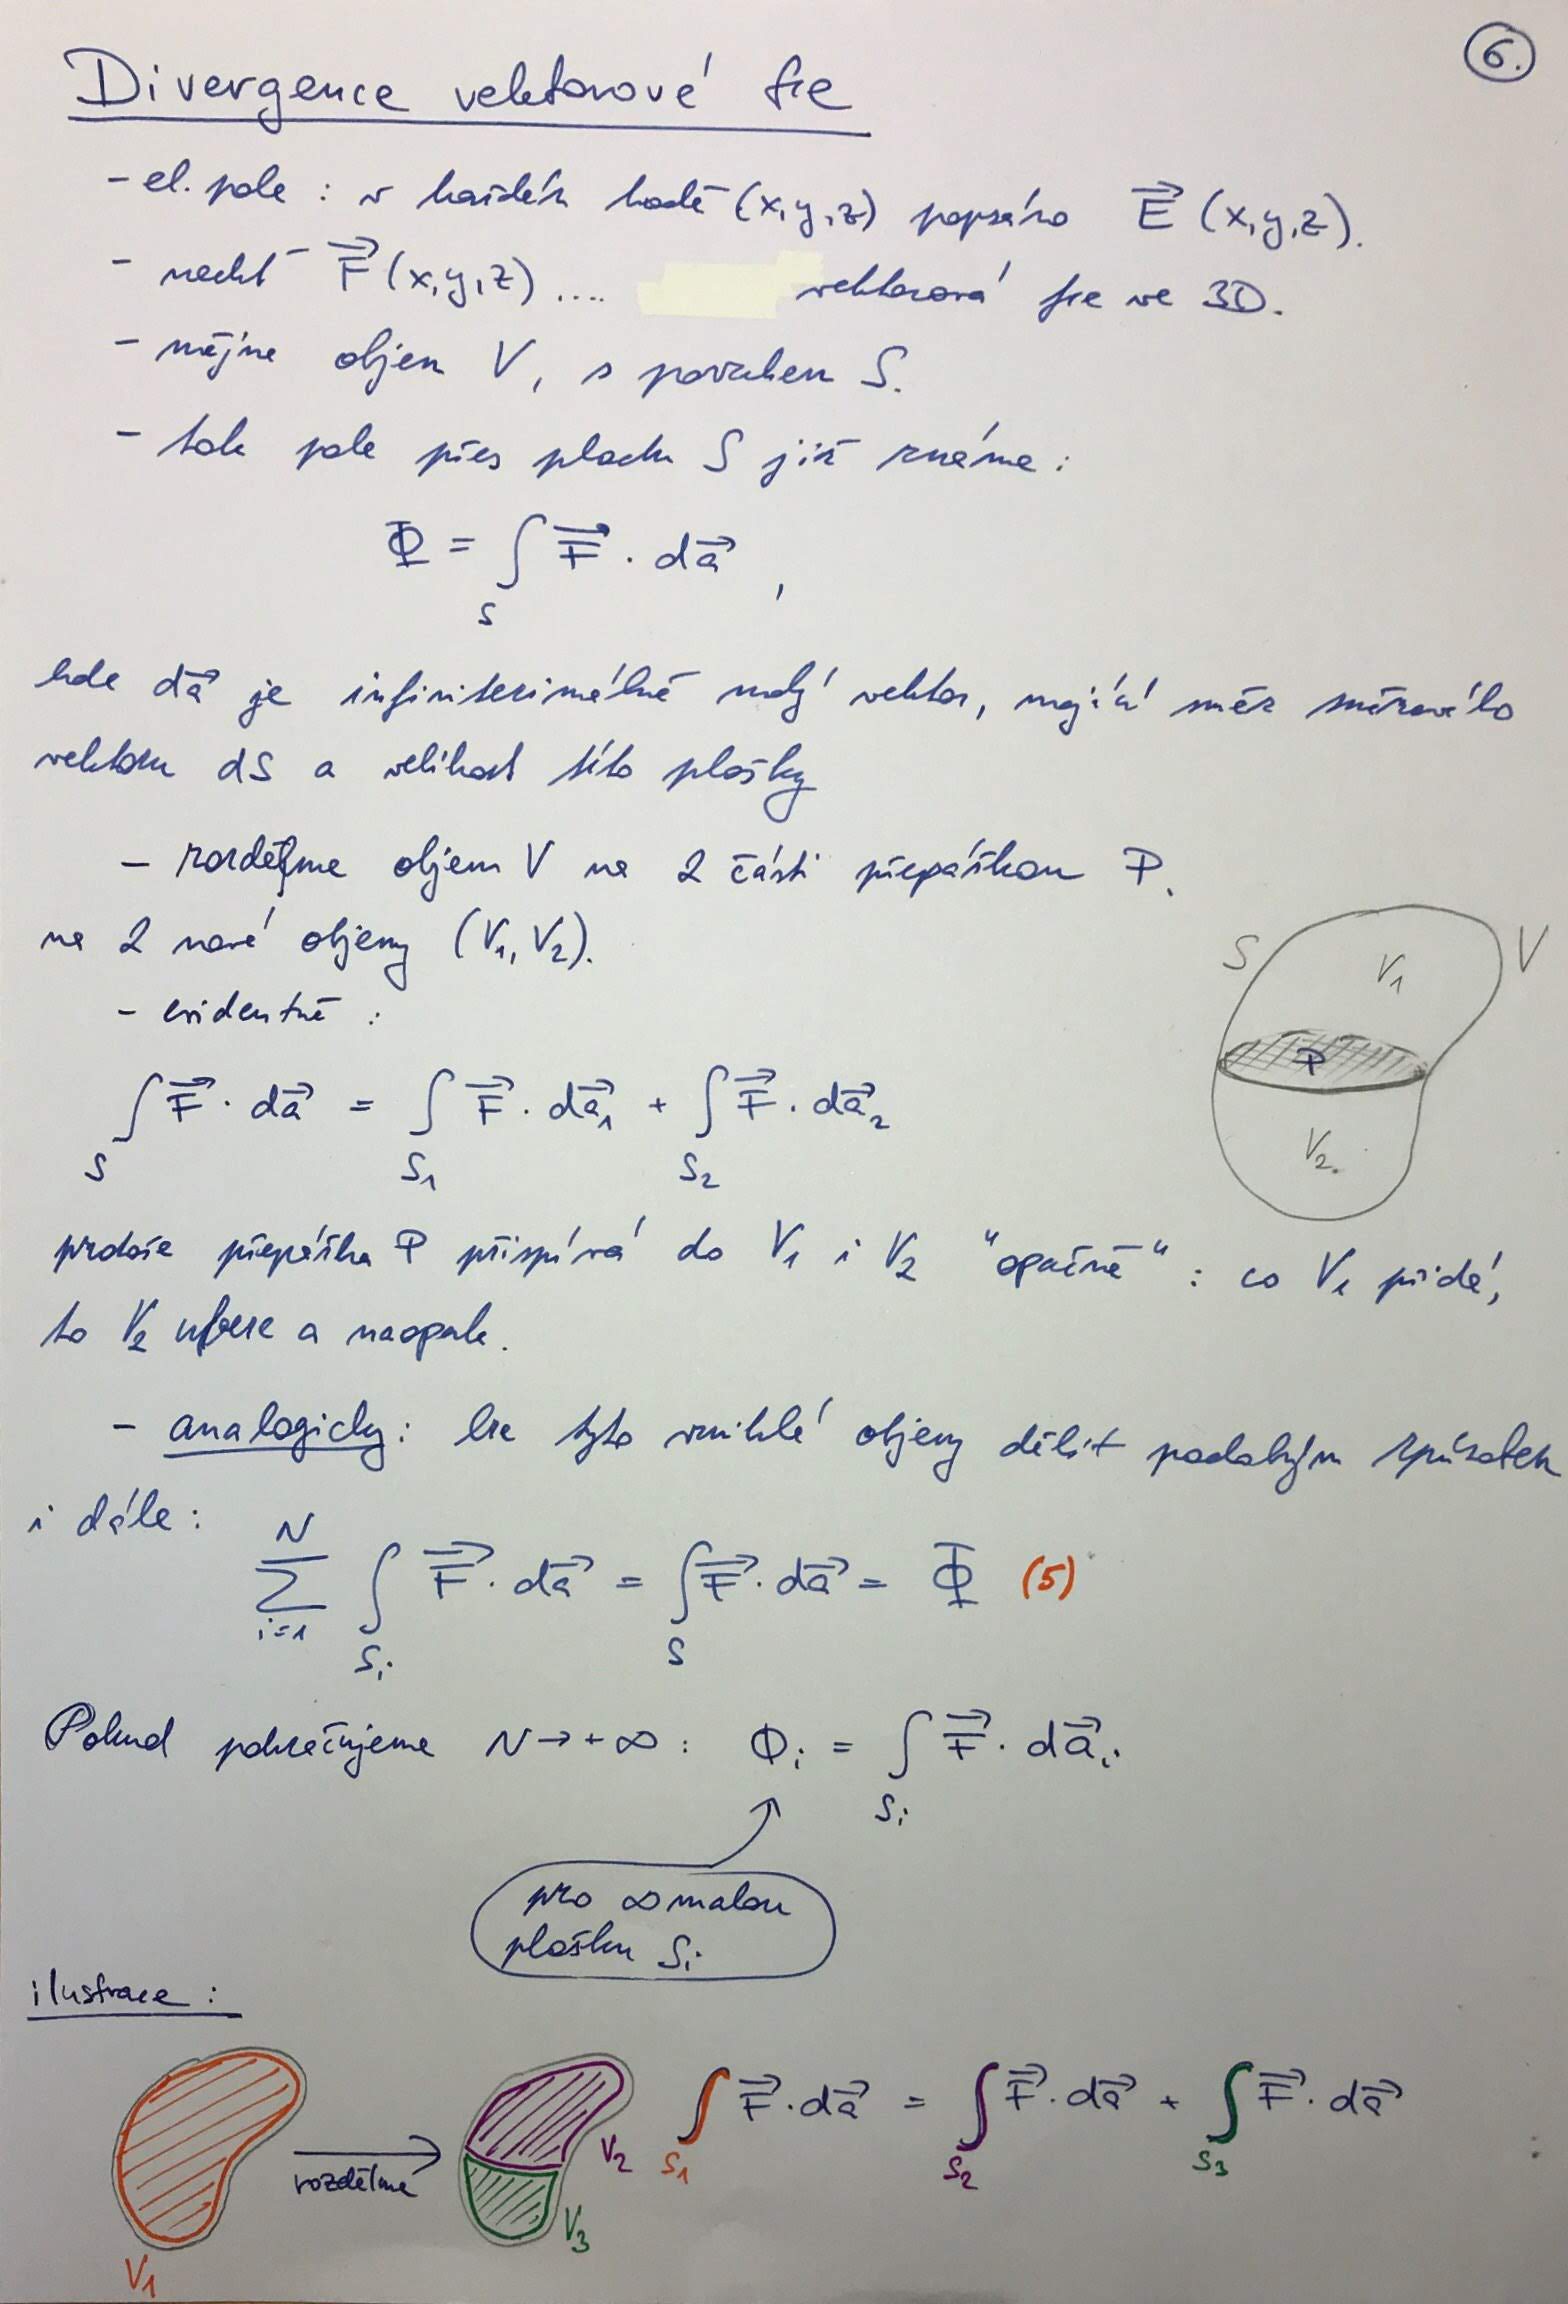 6.
Divergence vektorové fce
- el. pole : v každém bodě (x,y,z) popsáno E⃗ (x,y,z).
- nechť F⃗ (x,y,z) .... vektorová fce ve 3D.
- mějme objem V, s povrchem S.
- tok pole přes plochu S již známe :
Φ = ∫_S F⃗ · da⃗ ,
kde da⃗ je infinitesimálně malý vektor, mající směr směrového
vektoru dS a velikost této plošky
- rozdělme objem V na 2 části přepážkou P.
na 2 nové objemy (V₁, V₂).
- evidentně :
S V₁ V
P
V₂
∫_S F⃗ · da⃗ = ∫_S₁ F⃗ · da⃗₁ + ∫_S₂ F⃗ · da⃗₂
protože přepážka P přispívá do V₁ i V₂ "opačně" : co V₁ přidá,
to V₂ ubere a naopak.
- analogicky : lze tyto vzniklé objemy dělit podobným způsobem
i dále :
∑_{i=1}^{N} ∫_{Sᵢ} F⃗ · da⃗ = ∫_S F⃗ · da⃗ = Φ (5)
Pokud pokračujeme N → +∞ : Φᵢ = ∫_{Sᵢ} F⃗ · da⃗ᵢ
pro ∞ malou
plošku Sᵢ
ilustrace :
V₁ rozdělme V₂ V₃
∫_S₁ F⃗ · da⃗ = ∫_S₂ F⃗ · da⃗ + ∫_S₃ F⃗ · da⃗